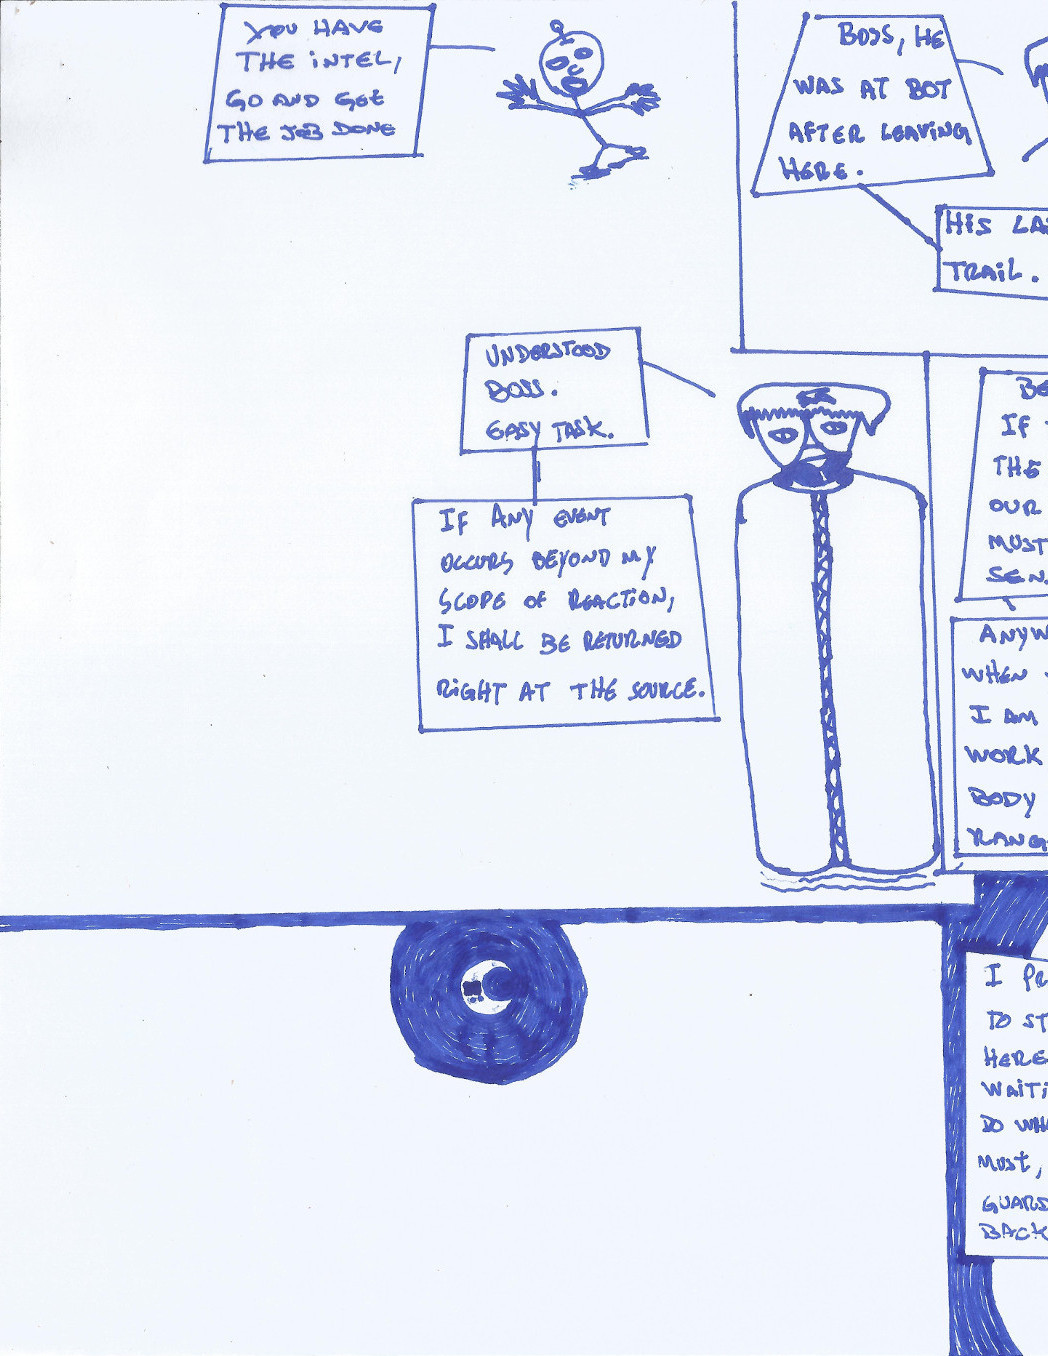 YOU HAVE
THE INTEL,
GO AND GET
THE JOB DONE
BOSS, HE
WAS AT BOT
AFTER LEAVING
HERE.
HIS LA
TRAIL.
UNDERSTOOD
BOSS.
EASY TASK.
IF ANY EVENT
OCCURS BEYOND MY
SCOPE OF REACTION,
I SHALL BE RETURNED
RIGHT AT THE SOURCE.
BE
IF
THE
OUR
MUST
SEN
ANYW
WHEN
I AM
WORK
BODY
RANG
I PR
TO ST
HERE
WAITI
DO WH
MUST,
GUARS
BACK